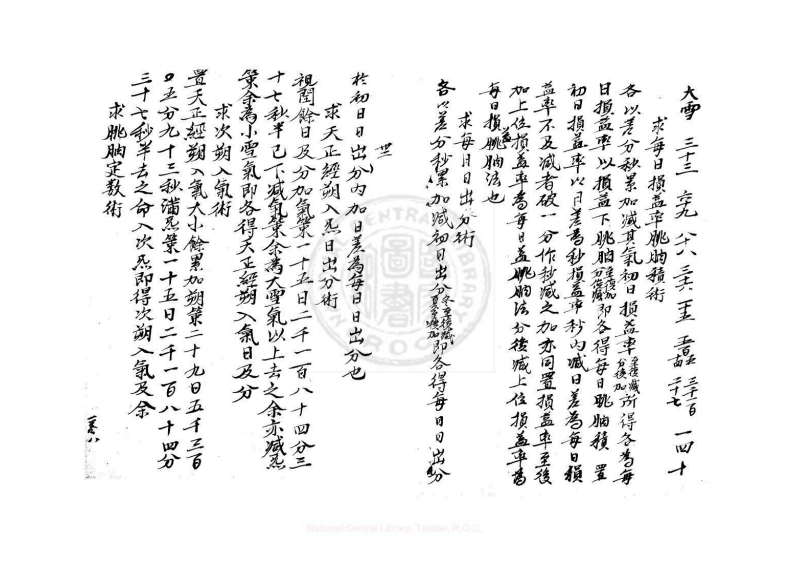 大雪
求每日損益率朓朒積術
各以差分秒累加減其氣初日損益率至後減分後加所得各為每
日損益率以損益下朓朒至後加分後減即各得每日朓朒積 置
初日損益率以日差為秒損益率秒內減日差為每日損
益率不及減者破一分作秒減之加亦同置損益率至後
加上位損益率為每日益朓朒法分後減上位損益率為
每日損朓朒法也
求每日日出分術
各以差分秒累加減初日出分冬至後減夏至後加即各得每日日出分
於初日日出分內加日差為每日日出分也
求天正經朔入炁日出分術
視閏餘日及分加氣策一十五日二千一百八十四分三
十七秒半已下減氣策余為大雪氣以上去之余亦減炁
策余為小雪氣即各得天正經朔入氣日及分
求次朔入氣術
置天正經朔入氣大小餘累加朔策二十九日五千三百
〇五分九十三秒滿炁策一十五日二千一百八十四分
三十七秒半去之命入次炁即得次朔入氣及余
求朓朒定数術
National Central Library, Taiwan, R.O.C.